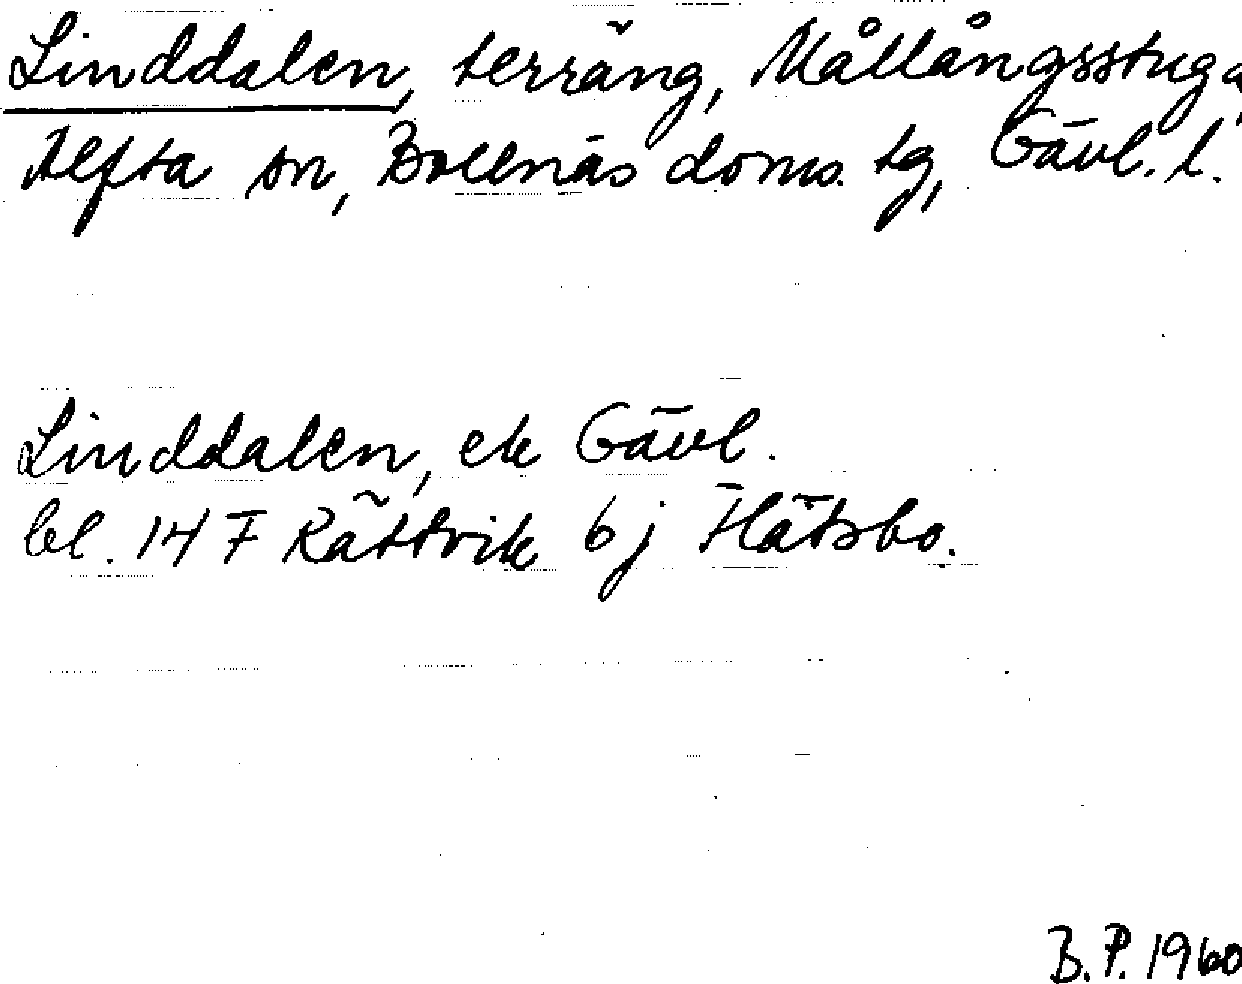 Linddalen, terräng, Mållångsstuga,
Alfta sn, Bollnäs doms. tg, Gävl. l.
Linddalen, ek Gävl.
bl. 14 F Rättvik 6 j Flätsbo.
B.P. 1960